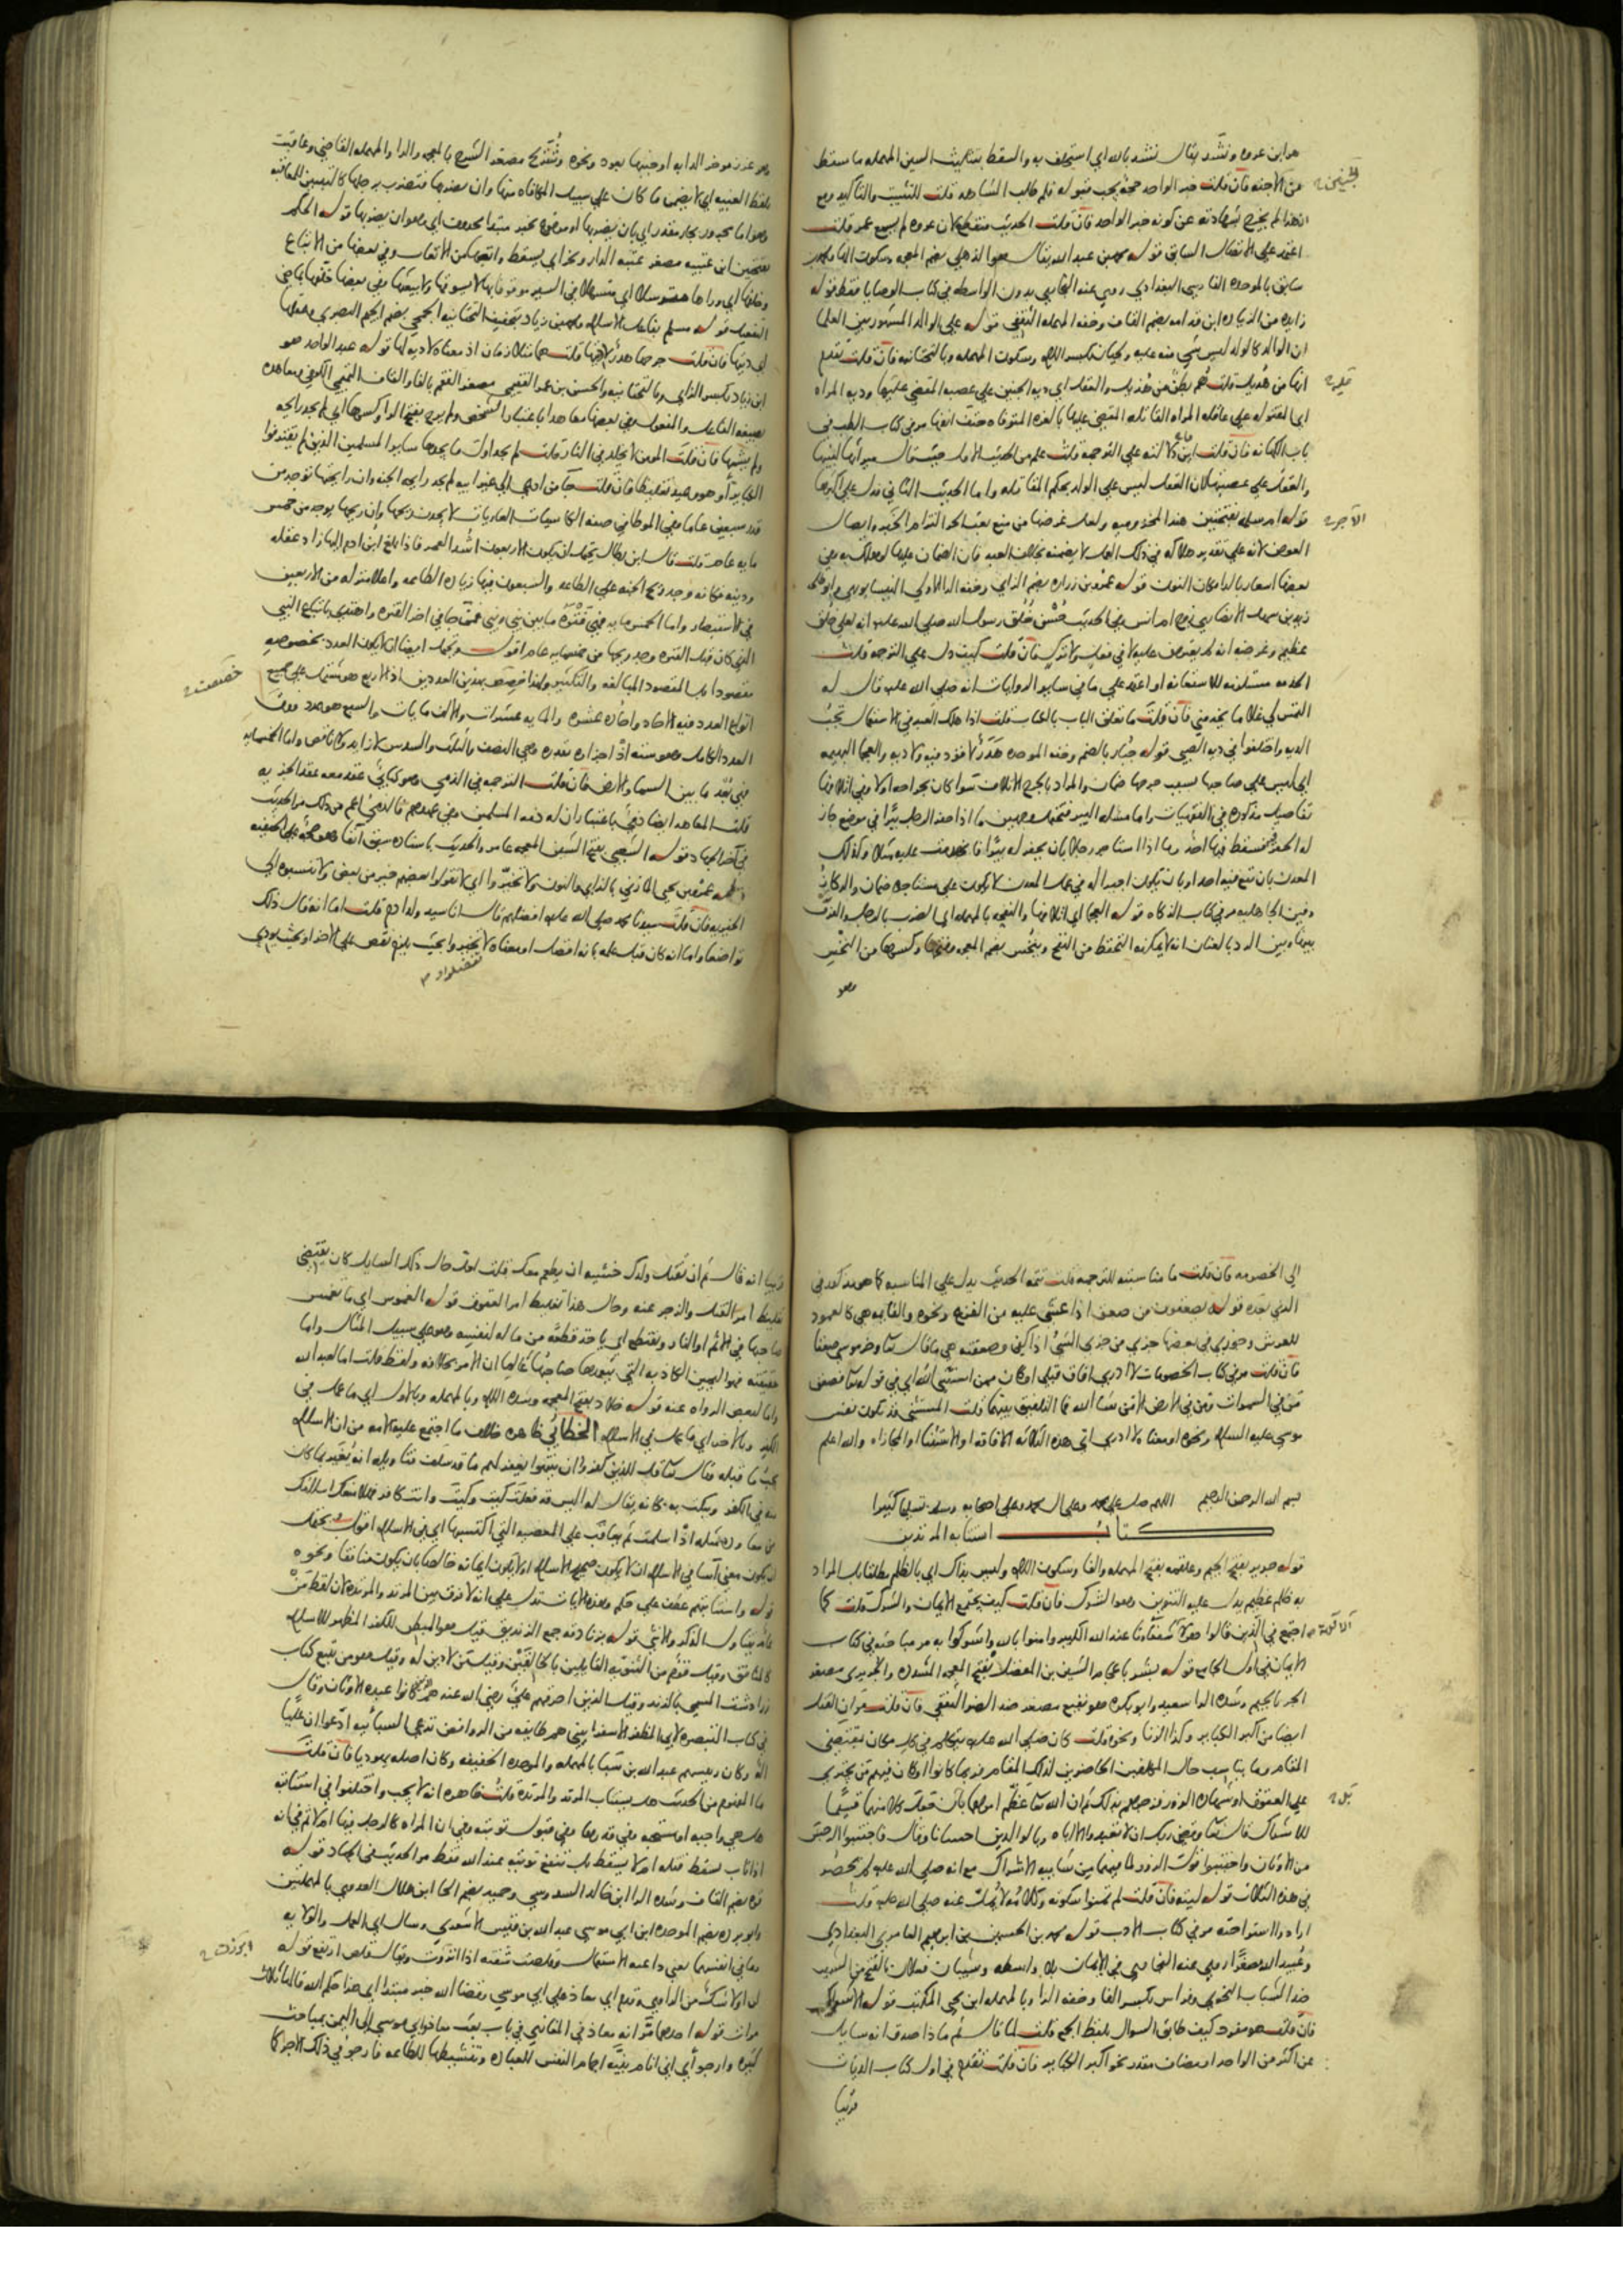 هو ابن عروه ونشد يقال نشد بالله اي استحلف به والسقط بتثليث السين المهمله ما سقط
من الاجنه فان قلت خبر الواحد حجة يجب قبوله فلم طلب الشاهد قلت للتثبيت والتاكيد ومع
الجنين
هذا لم يخرج بشهادته عن كونه خبر الواحد فان قلت الحديث منقطع لان عروه لم يسمع عمر قلت
اعتمد علي الاتصال السابق قوله محمد بن عبد الله يقال هو الذهلي بضم المعجمه وسكون الها ومحمد بن
سابق بالموحده الفارسي البغدادي روي عنه البخاري بدون الواسطه في كتاب الوصايا فقط قوله
زايده من الزياده ابن قدامه بضم القاف وخفه المهمله الثقفي قوله علي الوالد المشهور بين العلما
ان الوالد كالولد ليس شي منه عليه ولحيان بكسر اللام وسكون المهمله وبالتحتانيه فان قلت تقدم
انها من هذيل قلت هم بطن من هذيل والعقل اي دية الجنين علي عصبه المقضي عليها ودية المراه
اي المقتوله علي عاقله المراه القاتله المقضي عليها بالغره المتوفاه حتف انفها مر في كتاب الطب في
باب الكهانه فان قلت اين دلالته علي الترجمه قلت علم من الحديث الاول حيث قال ميراثها لبنيها
والعقل علي عصبتها لان العقل ليس علي الولد بحكم المقابله واما الحديث الثاني فدل علي اكثرها
قوله ام سلمه بفتحتين هند المخزوميه ولعل غرضها من منع بعث الحر التزام الجبر وايصال
الاجر
العوض لانه علي تقدير هلاكه في ذلك العمل لا يضمنه بخلاف العبد فان الضمان عليها لو هلك به وفي
بعضها
قوله عمرو بن زراره بضم الزاي وخفه الرا الاولي النيسابوري وابو طلحه
زيد بن سهل الانصاري زوج ام انس وفي الحديث حسن خلق رسول الله صلي الله عليه وسلم وانه لعلي خلق
عظيم وغرضه انه لم يعترض عليه لا في فعل ولا ترك فان قلت كيف دل علي الترجمه قلت
الخدمه مستلزمه للاستعانه او اعتمد علي ما في ساير الروايات انه صلي الله عليه قال له
التمس لي غلاما يخدمني فان قلت ما تعلق الباب بالكتاب قلت اذا هلك العبد في الاستعمال تجب
الديه واختلفوا في دية الصبي قوله جبار بالضم وخفه الموحده هدر لا قود فيه ولا دية والعجما البهيمه
اي ليس علي صاحبها بسبب جرحها ضمان والمراد بالجرح الاتلاف سوا كان بجراحه اولا وفي اتلافها
تفاصيل مذكوره في الفقهيات واما مسئله البير فتحتمل وجهين ما اذا حفر الرجل بيرا في موضع جاز
له الحفر فسقط فيها احد وما اذا استاجر رجلا بان يحفر له بيرا فانهدمت عليه مثلا وكذلك
المعدن بان تقع فيه احد او بان يكون اجيرا له في عمل المعدن لا يكون علي مستاجره ضمان والركاز
دفين الجاهليه مر في كتاب الزكاه قوله العجما اي اتلافها والنفحه بالمهمله اي الضرب بالرجل والفرق
بينها وبين الرد بالعنان انه لا يمكنه التحفظ من النفح وينخس بضم المعجمه وفتحها وكسرها من النخس
وهو
وهو غرز موخر الدابه او جنبها بعود ونحوه وشريح مصغر الشرح بالمعجمه والرا والمهمله القاضي وعاقبت
بلفظ الغيبه اي لا يضمن ما كان علي سبيل المكافاه منها وان يضربها فتضرب برجلها كالتفسير للمعاقبه
وهو اما مجرور بجار مقدر اي بان يضربها او مرفوع خبر مبتدا محذوف اي وهو ان يضربها قوله الحكم
بفتحتين ابن عتيبه مصغر عتبه الدار وتخر اي يسقط واتبعها من الاتعاب وفي بعضها من الاتباع
وخلفها اي وراها مترسلا اي متسهلا في السير موقوفا بها لا يسوقها ولا يبعثها وفي بعضها خلفها بماضي
التفعيل قوله مسلم بفاعل الاسلام ومحمد بن زياد بتخفيف التحتانيه الجمحي بضم الجيم البصري وعقلها
اي ديتها فان قلت جرحها هدر لا ديتها قلت هما متلازمان اذ معناه لا دية لها قوله عبد الواحد هو
ابن زياد بكسر الزاي وبالتحتانيه والحسن بن عمرو الفقيمي مصغر الفقم بالفا والقاف التميمي الكوفي ومعاهده
بصيغه الفاعل والمفعول وفي بعضها معاهدا باعتبار الشخص ولم يرح بفتح الرا وكسرها اي لم يجد رايحه
ولم يشمها فان قلت المومن لا يخلد في النار قلت لم يجد اول ما يجدها ساير المسلمين الذين لم يقترفوا
الكباير او هو وعيد تغليظا فان قلت جا من ادعي الي غير ابيه لم يجد رايحه الجنه وان رايحتها توجد من
قدر سبعين عاما وفي الموطا في صفه الكاسيات العاريات لا يجدن ريحها وان ريحها يوجد من خمس
مايه عام قلت قال ابن بطال يحتمل ان يكون الاربعون اشد العمر فاذا بلغ ابن ادم اليها زاد عقله
ودينه فكانه وجد ريح الجنه علي الطاعه والسبعون فيها زياده الطاعه واعلا منزله من الاربعين
في الاستبصار واما الخمس مايه فهي فترة ما بين نبي ونبي فمن جا في اخر الفتره واهتدي باتباع النبي
الذي كان قبل الفتره وجد ريحها من خمسمايه عام اقول ويحتمل ايضا ان لا يكون العدد بخصوصه
مقصودا بل المقصود المبالغه والتكثير ولهذا خصص بهذين العددين اذ الاربع هو مشتمل علي جميع
خصصت
انواع العدد فيه الاحاد واحاده عشره والمايه عشرات والالف مايات والسبع هو عدد فوق
العدد الكامل وهو سته اذ اجزاوه بقدره وهي النصف والثلث والسدس لا زايد ولا ناقص واما الخمسمايه
فهي بعد ما بين السما والارض فان قلت الترجمه في الذمي وهو كتابي عقد معه عقد الجزيه
قلت المعاهد ايضا ذمي باعتبار ان له ذمه المسلمين وفي عهدهم فالذمي اعم من ذلك مر الحديث
في اخر الجهاد قوله الشعبي بفتح الشين المعجمه عامر والحديث باسناده سبق انفا وهو حجه علي الحنفيه
قوله عمرو بن يحيي المازني بالزاي والنون ولا تخيروا اي لا تقولوا بعضهم خير من بعض ولا تنسبوه الي
الخيريه فان قلت سيدنا محمد صلي الله عليه افضلهم قال انا سيد ولد ادم قلت اما انه قال ذلك
تواضعا واما انه كان قبل علمه بانه افضل او معناه لا تخيروا بحيث يلزم نقص علي الاخر او بحيث يودي
الي الخصومه فان قلت ما مناسبته للترجمه قلت تتمه الحديث يدل علي المناسبه كما هو مذكور في
الذي بعده قوله يصعقون من صعق اذا غشي عليه من الفزع ونحوه والقايمه هي كالعمود
للعرش وجوزي في بعضها جزي من جزي الشي اذا كفي وصعقته هي ما قال تعالي وخر موسي صعقا
فان قلت مر في كتاب الخصومات لا ادري افاق قبلي او كان ممن استثني الله اي في قوله تعالي فصعق
من في السموات ومن في الارض الا من شا الله فما التلفيق بينهما قلت المستثني قد يكون نفس
موسي عليه السلام ونحوه او معناه لا ادري اي هذه الثلاثه الافاقه او الاستثنا او المجازاه والله اعلم
بسم الله الرحمن الرحيم اللهم صل علي محمد وعلي ال محمد وعلي اصحابه وسلم تسليما كثيرا
كتاب استتابه المرتدين
قوله جرير بفتح الجيم وعلقمه بفتح المهمله والقاف وسكون اللام وليس بذاك اي بالظلم مطلقا بل المراد
به ظلم عظيم يدل عليه التنوين وهو الشرك فان قلت كيف يجتمع الايمان والشرك قلت كما
اجتمع في الذين قالوا هولا شفعاونا عند الله الكبير وامنوا بالله واشركوا به مر مباحثه في كتاب
الايمان في اول الجامع قوله بشر باعجام الشين بن المفضل بفتح المعجمه المشدده والجريري مصغر
الجر بالجيم وشده الرا سعيد وابو بكره هو نفيع مصغر ضد الضر الثقفي فان قلت مر ان القتل
ايضا من اكبر الكباير وكذا الزنا ونحوه قلت كان صلي الله عليه يتكلم في كل مكان بمقتضي
المقام وما يناسب حال المكلفين الحاضرين لذلك المقام فربما كانوا او كان فيهم من يجتري
علي العقوق او شهاده الزور فزجرهم بذلك ثم ان الله تعالي عظم امرهما بان جعل كلا منهما قسيما
بل
للاشراك قال تعالي وقضي ربك ان لا تعبدوا الا اياه وبالوالدين احسانا وقال فاجتنبوا الرجس
من الاوثان واجتنبوا قول الزور لما فيهما من شايبه الاشراك مع انه صلي الله عليه لم يحصر
في هذه الثلاث قوله ليته فان قلت لم تمنوا سكوته وكلامه لا يمل منه صلي الله عليه قلت
ارادوا استراحته مر في كتاب الادب قوله محمد بن الحسين بن ابراهيم العامري البغدادي
وعبيد الله مصغرا روي عنه البخاري في الايمان بلا واسطه وشيبان فعلان بالفتح من الشيب
ضد الشباب النحوي وفراس بكسر الفا وخفه الرا وبالمهمله ابن يحيي المكتب قوله الاشراك
فان قلت هو مفرد كيف طابق السوال بلفظ الجمع قلت لما قال ثم ماذا صدق انه سايل
عن اكثر من الواحد او مضاف مقدر نحو اكبر الكباير فان قلت تقدم في اول كتاب الديات
قريبا
قريبا انه قال ثم ان تقتل ولدك خشيه ان يطعم معك قلت لعل حال ذلك السايل كان يقتضي
تغليظ امر القتل والزجر عنه وحال هذا تغليظ امر العقوق قوله الغموس اي ما تغمس
صاحبها في الاثم او النار ويقتطع اي ياخذ قطعه من ماله لنفسه وهو علي سبيل المثال واما
حقيقته فهو اليمين الكاذبه التي يتعمدها صاحبها عالما ان الامر بخلافه ولفظ قلت اما لعبد الله
واما لبعض الرواه عنه قوله خلاد بفتح المعجمه وشده اللام وبالمهمله وبالاول اي ما عمل في
الكفر وبالاخر اي ما عمل في الاسلام الخطابي ظاهره خلاف ما اجتمع عليه الامه من ان الاسلام
يجب ما قبله وقال تعالي قل للذين كفروا ان ينتهوا يغفر لهم ما قد سلف فتاويله انه يعير بما كان
منه في الكفر ويبكت به كانه يقال له اليس قد فعلت كيت وكيت وانت كافر فهلا منعك اسلامك
من معاوده مثله اذا اسلمت ثم يعاقب علي المعصيه التي اكتسبها اي في الاسلام اقول يحتمل
ان يكون معني اسا في الاسلام ان لا يكون صحيح الاسلام او لا يكون ايمانه خالصا بان يكون منافقا ونحوه
قوله واستتابتهم عطف علي حكم وهذه الايات تستدل علي انه لا فرق بين المرتد والمرتده لان لفظ من
عام يتناول الذكر والانثي قوله بزنادقه جمع الزنديق قيل هو المبطن للكفر المظهر للاسلام
كالمنافق وقيل قوم من الثنويه القايلين بالخالقين وقيل من لا دين له وقيل هو من يتبع كتاب
زرادشت المسمي بالزند وقيل الذين احرقهم علي رضي الله عنه هم كانوا عبده الاوثان وقال
في كتاب التبصره لابي المظفر الاسفرايني هم طايفه من الروافض تدعي السبائيه ادعوا ان عليا
اله وكان رييسهم عبد الله بن سبا بالمهمله والموحده الخفيفه وكان اصله يهوديا فان قلت
ما المفهوم من الحديث هل يستتاب المرتد والمرتده قلت ظاهره انه لا يجب واختلفوا في استتابته
هل هي واجبه او مستحبه وفي قدرها وفي قبول توبته وفي ان المراه كالرجل فيها ام لا ثم في انه
اذا تاب يسقط قتله ام لا يسقط بل تنفع توبته عند الله فقط مر الحديث في الجهاد قوله
قره بضم القاف وشده الرا ابن خالد السدوسي وحميد بضم الحا ابن هلال العدوي بالمهملتين
وابو برده بضم الموحده ابن ابي موسي عبد الله بن قيس الاشعري وسال اي العمل والولايه
وما في انفسهما يعني داعيه الاستعمال وقلصت شفته اذا انزوت ويقال قلص ارتفع قوله
انزوت
لن او لا شك من الراوي وقدم اي معاذ علي ابي موسي وقضا الله خبر مبتدا اي هذا حكم الله قالها ثلاث
مرات قوله احدهما مر انه معاذ في المغازي في باب بعث معاذ وابي موسي الي اليمن بمباحث
كثيره وارجو اي اني انام بنيه اجمام النفس للعباده وتنشيطها للطاعه فارجو في ذلك الاجر كما